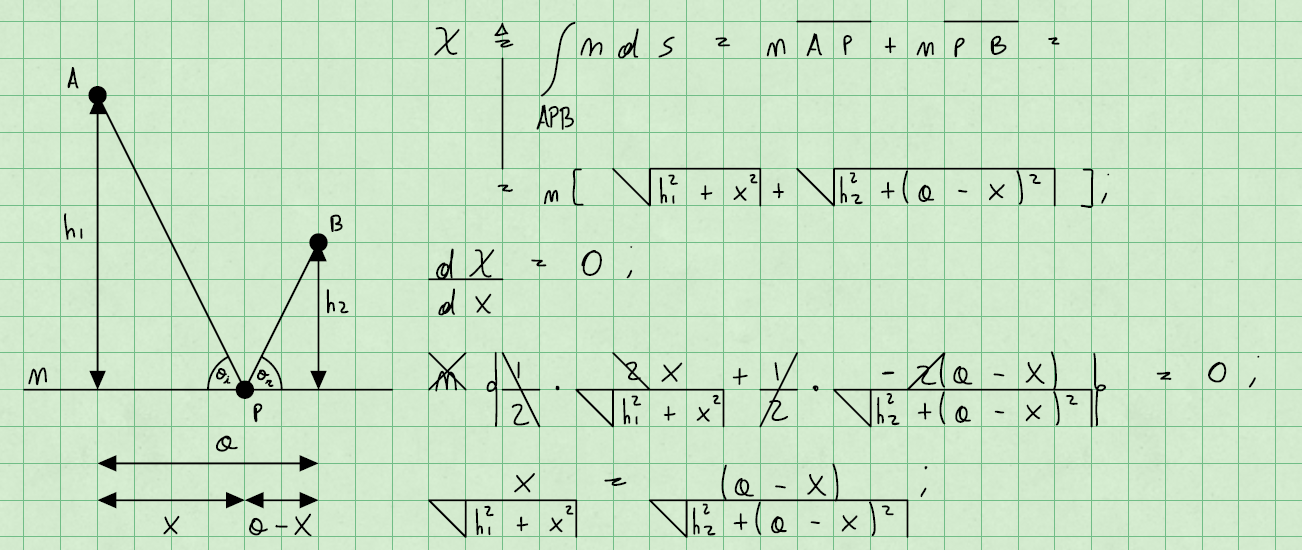 A
h₁
B
h₂
n
θᵢ θᵣ
P
a
x a - x
χ ≜ ∫ n d s = n A̅P̅ + n P̅B̅ =
APB
= n [ √(h₁² + x²) + √(h₂² + (a - x)²) ] ;
dχ/dx = 0 ;
n { 1/2 · 2x/√(h₁² + x²) + 1/2 · -2(a - x)/√(h₂² + (a - x)²) } = 0 ;
x/√(h₁² + x²) = (a - x)/√(h₂² + (a - x)²) ;